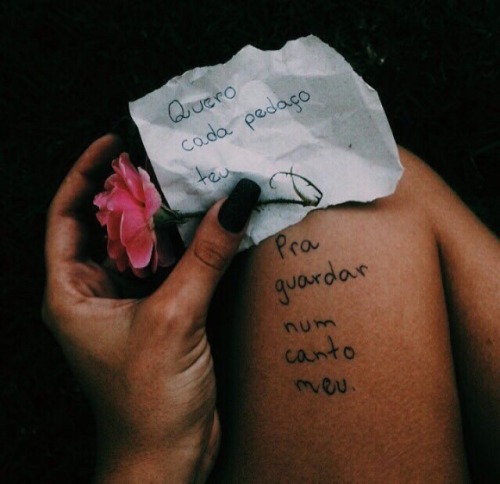 Quero
cada pedaço
teu
Pra
guardar
num
canto
meu.